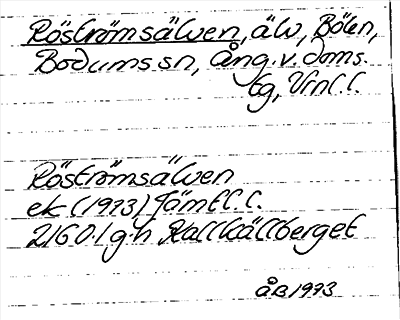 Röströmsälven, älv, Bölen,
Bodums sn, Ång.v.doms.
tg, Vrnl.l.
Röströmsälven
ek (1973) Jämtl.l.
21G0.1g.h Kallkällberget
ÅB 1973